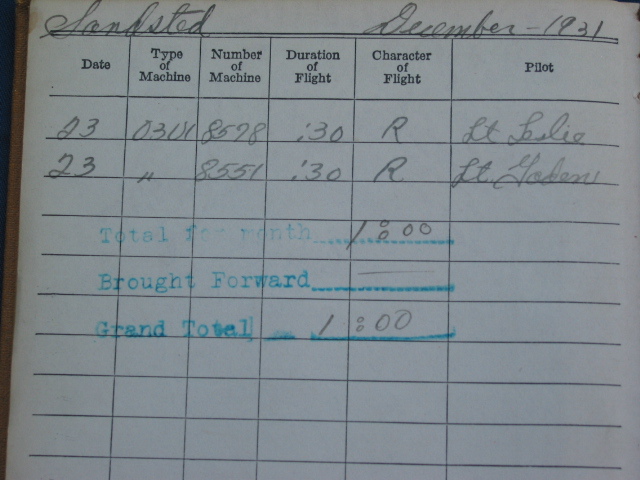 Sandsted December - 1931
Date Type of Machine Number of Machine Duration of Flight Character of Flight Pilot
23 O3U1 8578 :30 R Lt Leslie
23 " 8551 :30 R Lt.
Total for month 1:00
Brought Forward —
Grand Total 1:00